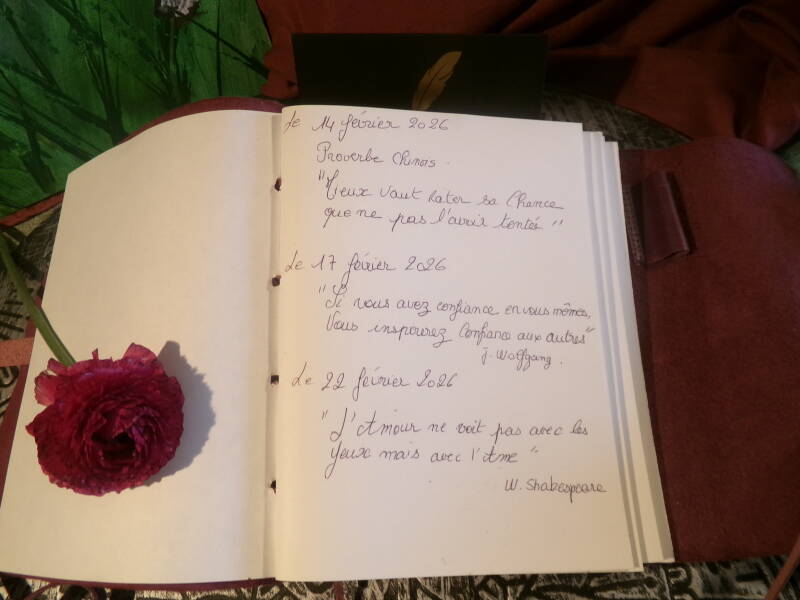 Le 14 février 2026
Proverbe Chinois.
"Mieux vaut rater sa Chance
que ne pas l'avoir tentés"
Le 17 février 2026
"Si vous avez confiance en vous mêmes,
Vous inspourez Confiance aux autres"
J. Wolfgang.
Le 22 février 2026
"L'Amour ne voit pas avec les
Yeux mais avec l'Ame"
W. Shakespeare